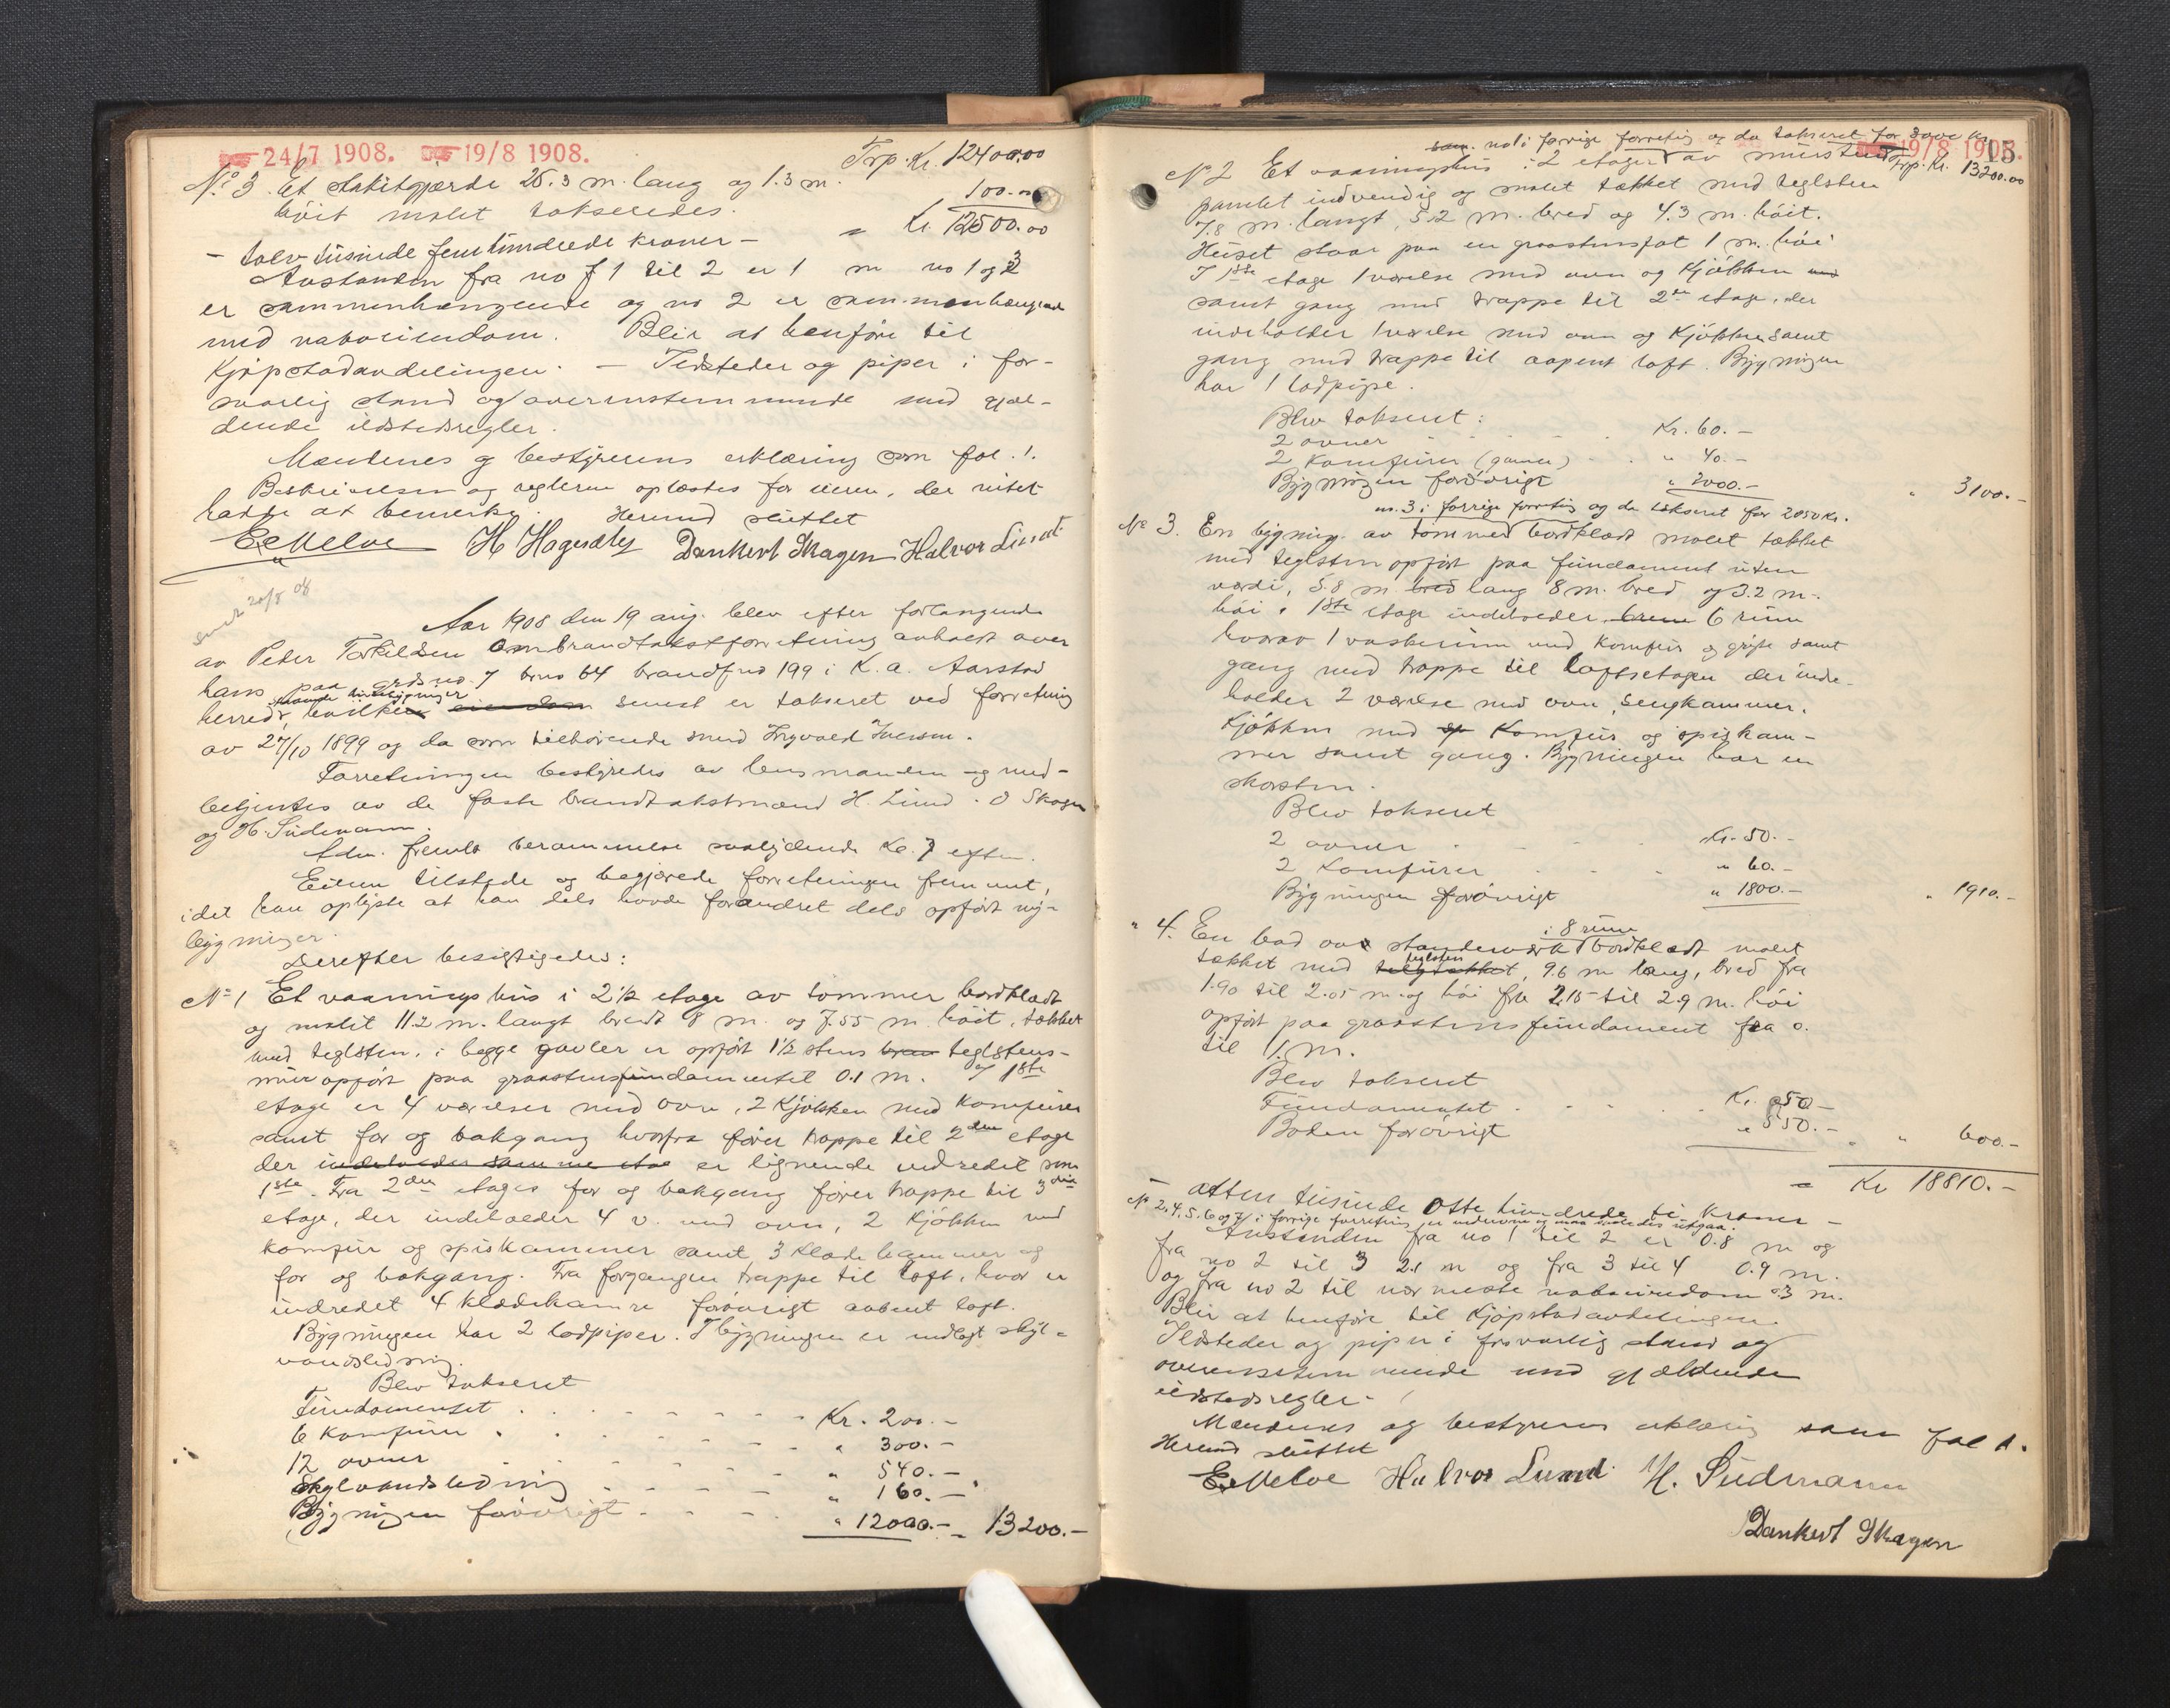 24/7 1908. 19/8 1908.
Trp. Kr. 12400.00
No 3. Et stakitgjærde 25.3 m. lang og 1.3 m.
høit malet takseredes.
100.00
- tolv tusinde fem hundrede kroner -
= Kr. 12500.00
Avstanden fra no 1 til 2 er 1 m no 1 og 3
er sammenhængende og no 2 er sammenhængende
med naboeiendom. Blir at henføre til
Kjøpstadavdelingen. - Ildsteder og piper i for-
svarlig stand og overenstemmende med gjæl-
dende ildstedsregler.
Mændenes og bestyrerens erklæring som fol. 1.
Beskrivelsen og reglerne oplæstes for eieren, der intet
hadde at bemerke. Hermed sluttet
E. Melve H Hagesæter Dankert Skagen Halvor Lund
sendt 20/8 08
Aar 1908 den 19 aug. blev efter forlangende
av Peder Torkildsen ombrandtakstforretning avholdt over
hans paa grds.no. 7 brno 64 brandfno 199 i K. a. Aarstad
staaende husebygninger
herred, hvilke eiendom senest er takseret ved forretning
av 27/10 1899 og da som tilhørende smed Ingvald Iversen.
Forretningen bestyredes av lensmanden og med-
betjentes av de faste brandtakstmænd H. Lund. D Skagen
og H. Sudmann.
Adm. fremla berammelse saalydende Kr. 7 eftm.
Eieren tilstede og begjærede forretningen fremmet,
idet han oplyste at han dels havde forandret dels opført ny-
bygninger.
Derefter besigtigedes:
No 1 Et vaaningshus i 2 1/2 etage av tømmer bordklædt
og malet 11.2 m. langt bredt 8 m. og 7.55 m. høit, tækket
med teglsten, i begge gavler er opført 1 1/2 stens teglstens-
mur opført paa graastensfundament til 0.1 m. I 1ste
etage er 4 værelser med ovn, 2 Kjøkken med Komfurer
samt for og bakgang hvorfra fører trappe til 2den etage
der indeholder samme eta er lignende indredet som
1ste. Fra 2den etages for og bakgang fører trappe til 3die
etage, der indeholder 4 v. med ovn, 2 Kjøkken med
komfur og spiskammer samt 3 Klædekammer og
for og bakgang. Fra forgangen trappe til loft, hvor er
indredet 4 klædekamre forøvrigt aabent loft.
Bygningen har 2 lodpiper. I bygningen er indlagt skyl-
vandsledning.
Blev takseret
Fundamentet . . . . Kr. 200.-
6 Komfurer . . . . " 300.-
12 ovner . . . . " 540.-
Skylvandsledning . . . . " 160.-
Bygningen forøvrigt . . . " 12000.- - 13200.-
15
19/8 1908.
no 1 i forrige forretning og da takseret for
Trp. Kr. 13200.00
No 2 Et vaaningshus i 2 etager av mursten
panelet indvendig og malet tækket med teglsten
7.8 m. langt, 5.2 m. bred og 4.3 m. høit.
Huset staar paa en graastensfot 1 m. høi
I 1ste etage 1 værelse med ovn og Kjøkken med
samt gang med trappe til 2den etage, der
indeholder 1 værelse med ovn og Kjøkken samt
gang med trappe til aapent loft. Bygningen
har 1 lodpipe.
Blev takseret:
2 ovner . . . . Kr. 60.-
2 Komfurer (gamle) . . " 40.-
Bygningen forøvrigt " 3000.- " 3100.-
no. 3 i forrige forretning og da takseret for 2050 Kr.
No 3. En bygning av tømmer bordklædt malet tækket
med teglsten opført paa fundament uten
værdi, 5.8 m bred lang 8 m. bred og 3.2 m.
høi i 1ste etage indeholder 6 rum
hvorav 1 vaskerum med Komfur og gryte samt
gang med trappe til loftsetagen der inde-
holder 2 værelse med ovn, sengkammer,
Kjøkken med sp Komfur og spiskam-
mer samt gang. Bygningen har en
skorsten.
Blev takseret
2 ovner . . . . Kr. 50.-
2 Komfurer . . . " 60.-
Bygningen forøvrigt " 1800.- " 1910.-
i 8 rum
" 4. En bod av standerværk bordklædt malet
teglsten
tækket med, 9.6 m lang, bred fra
1.90 til 2.05 m. og høi fra 2.15 til 2.9 m. høi
opført paa graastensfundament fra 0.
til 1. m.
Blev takseret
Fundamentet . . . Kr. 50.-
Boden forøvrigt " 550.- " 600.-
= Kr 18810.-
- atten tusinde otte hundrede ti Kroner -
No 2, 4, 5, 6 og 7 i forrige forretning er nedrevne og maa saaledes utgaa.
Avstanden fra no 1 til 2 er 0.8 m og
fra no 2 til 3 2.1 m og fra 3 til 4 0.9 m.
og fra no 2 til nærmeste naboeiendom 3 m.
Blir at henføre til Kjøpstadavdelingen.
Ildsteder og piper i forsvarlig stand og
overensstemmende med gjældende
ildstedsregler.
Mændenes og bestyrerens erklæring som fol 1.
Hermed sluttet
E. Melve Halvor Lund H. Sudmann
Dankert Skagen